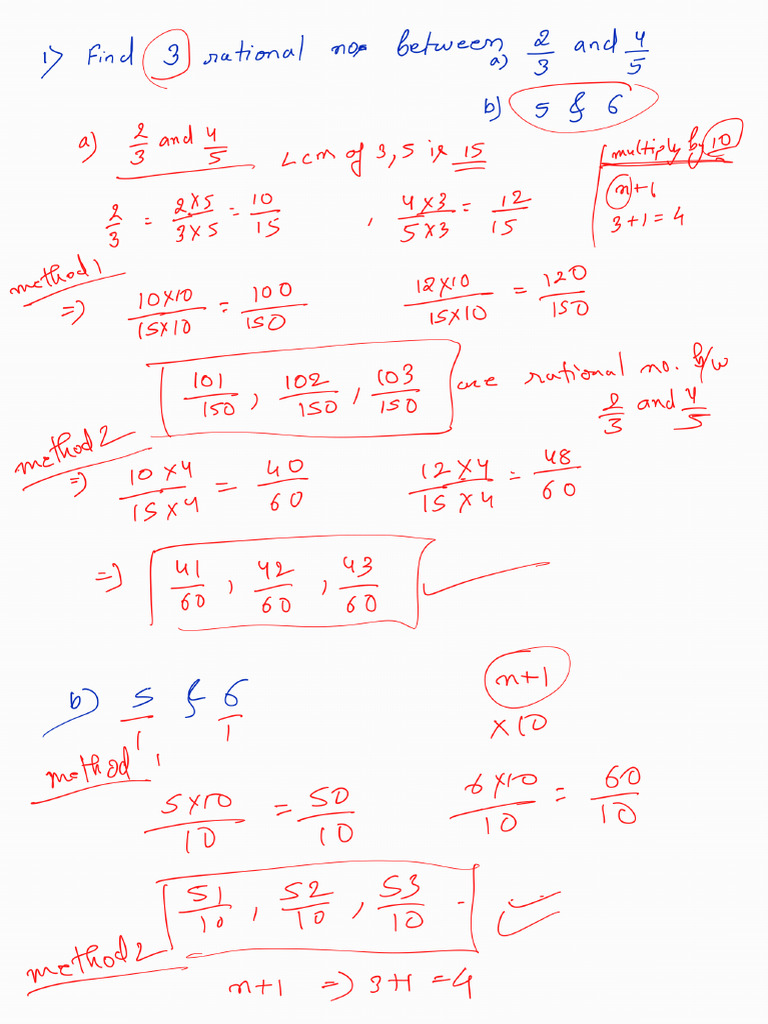 1) Find 3 rational nos between a) 2/3 and 4/5
b) 5 & 6
a) 2/3 and 4/5 Lcm of 3, 5 is 15
multiply by 10
n+1
3+1=4
2/3 = 2×5/3×5 = 10/15 , 4×3/5×3 = 12/15
method 1
=) 10×10/15×10 = 100/150 12×10/15×10 = 120/150
101/150, 102/150, 103/150 are rational no. b/w 2/3 and 4/5
method 2
=) 10×4/15×4 = 40/60 12×4/15×4 = 48/60
=) 41/60, 42/60, 43/60
b) 5/1 & 6/1
n+1
×10
method 1
5×10/10 = 50/10 6×10/10 = 60/10
51/10, 52/10, 53/10
method 2
n+1 =) 3+1 = 4